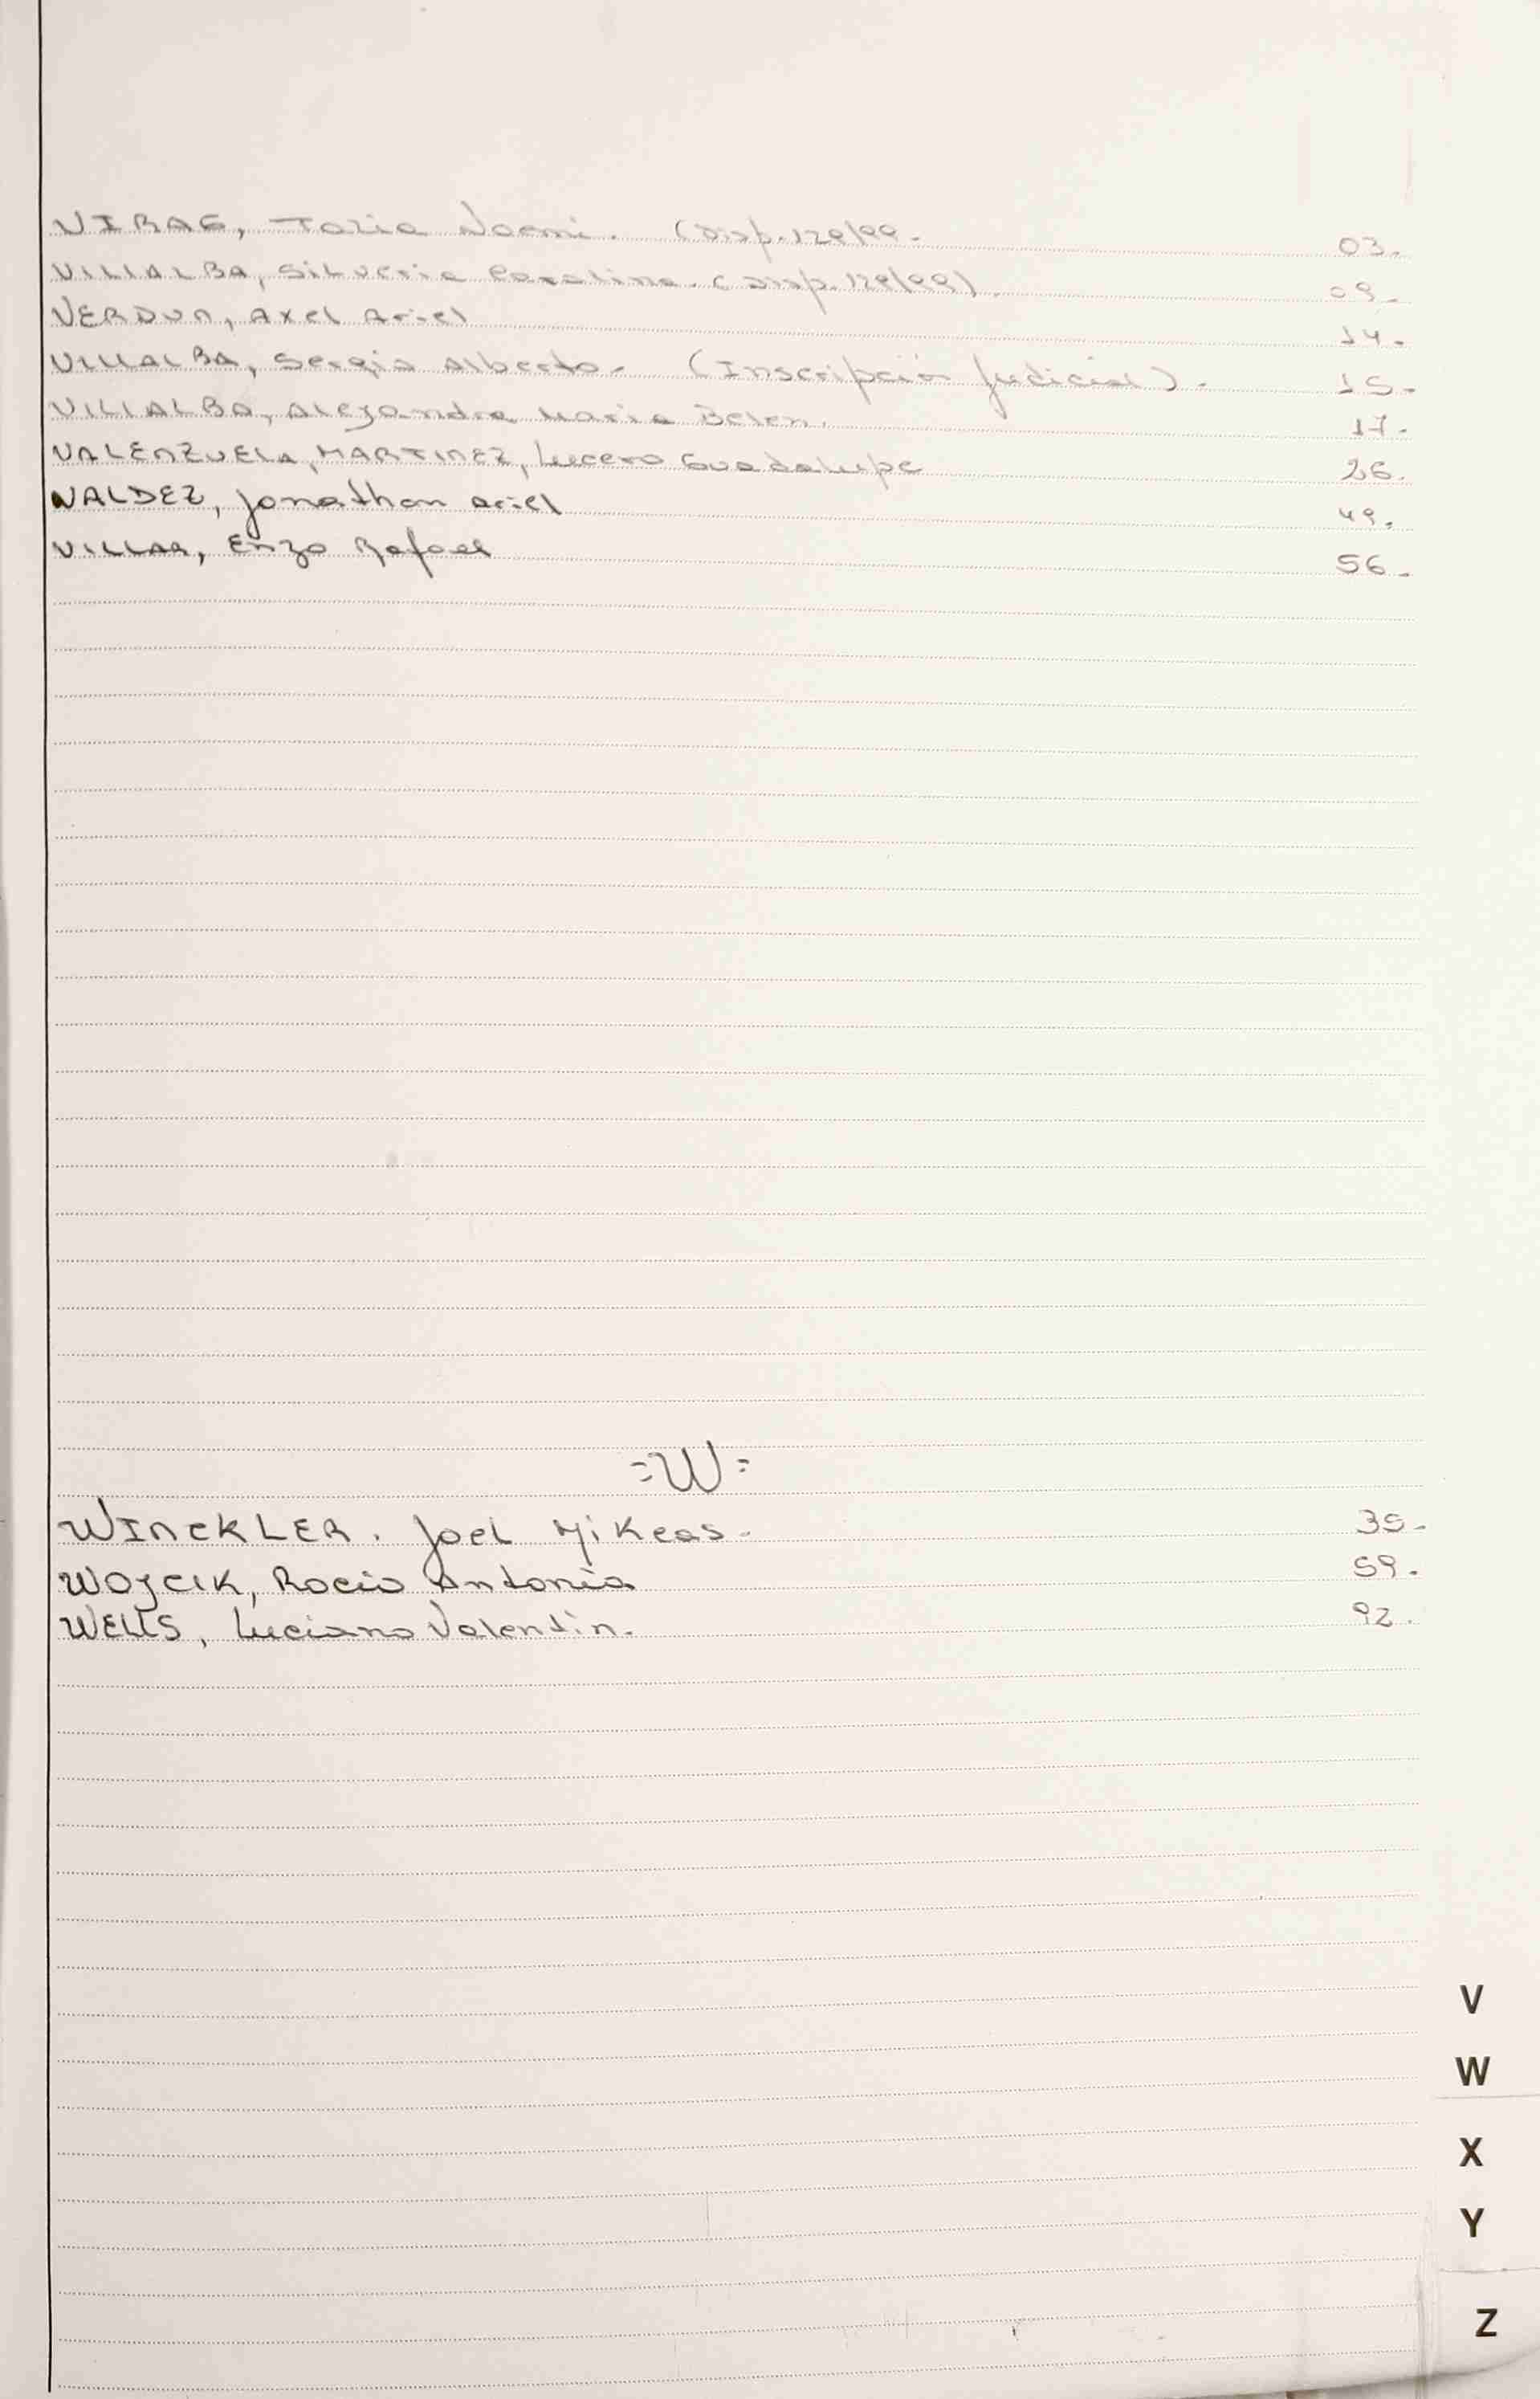 VIRAG, Tania Noemi. (Disp. 129/99.
03.
VILLALBA, Silveria Carolina. (Disp. 129/99)
09.
VERDUN, Axel Ariel
14.
VILLALBA, Sergio Alberto. (Inscripción Judicial).
15.
VILLALBA, Alejandra Maria Belen.
17.
VALENZUELA, MARTINEZ, Lucero Guadalupe
26.
VALDEZ, Jonathan Ariel
49.
VILLAR, Enzo Rafael
56.
=W=
WINCKLER. Joel Mikeas.
35.
WOJCIK, Rocio Antonia
59.
WELLS, Luciano Valentin.
92.
V
W
X
Y
Z